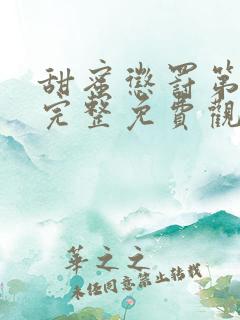 甜蜜懲罰第
完整免費觀
華之之
未经同意禁止转载